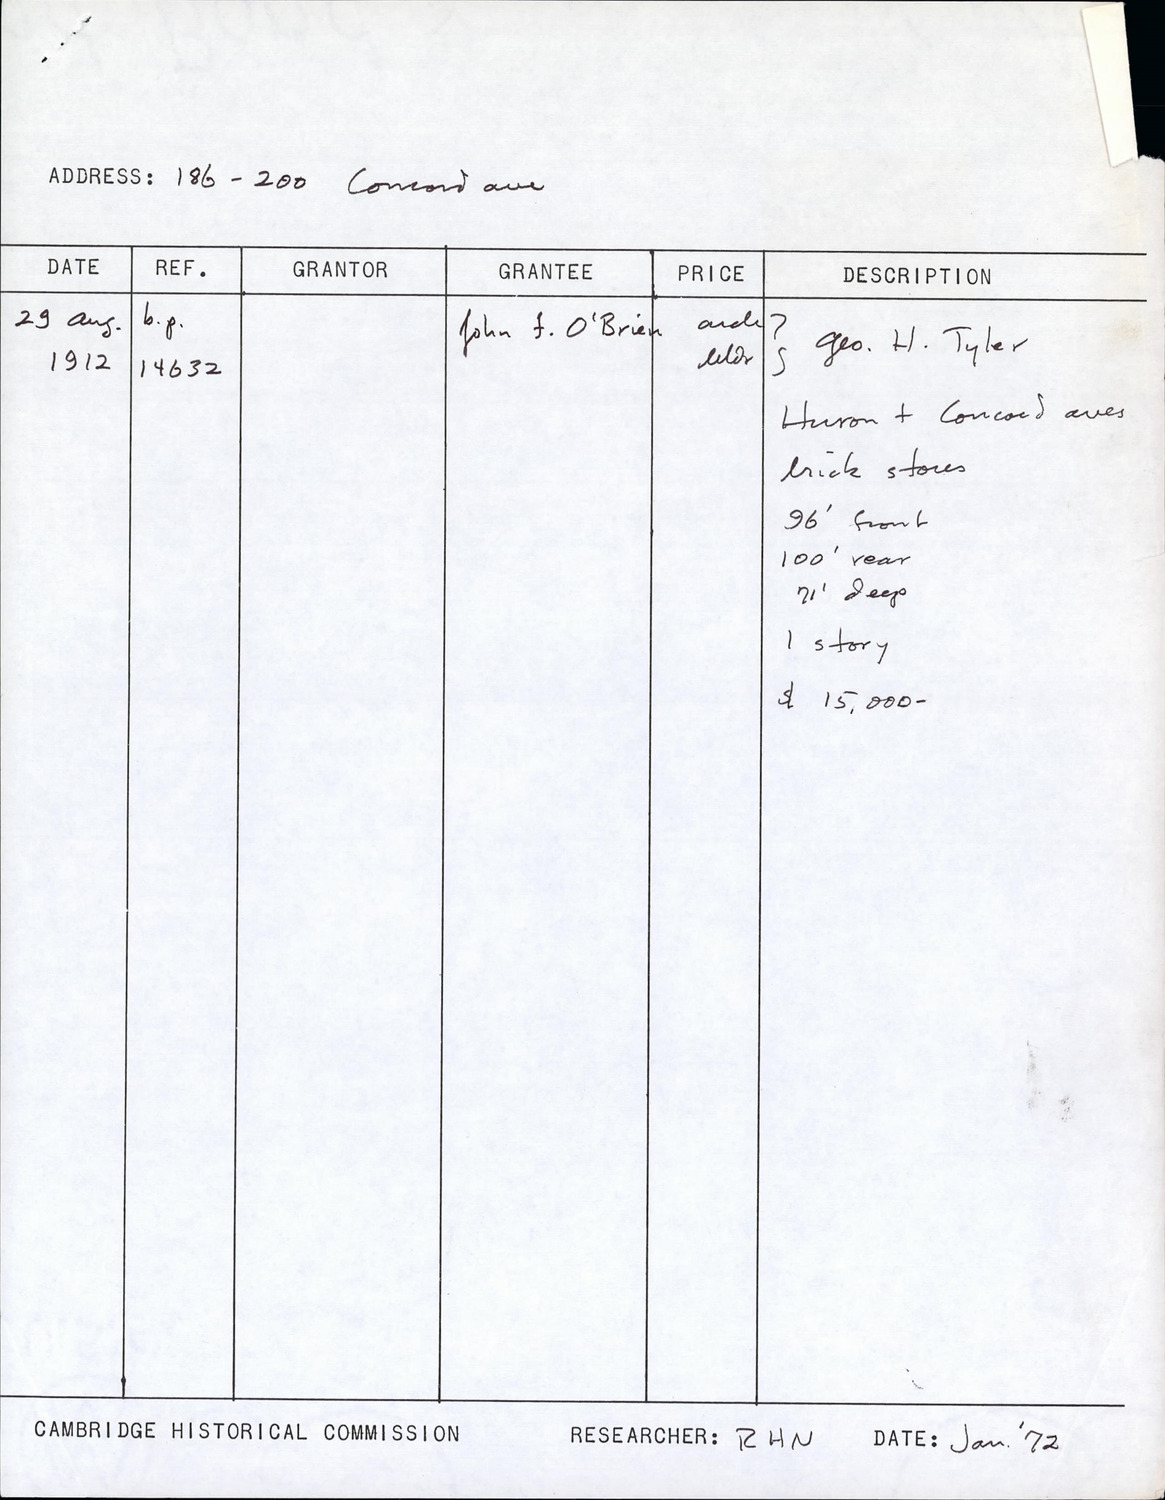 ADDRESS: 186 - 200 Concord ave
DATE REF. GRANTOR GRANTEE PRICE DESCRIPTION
29 Aug. b.p. John F. O'Brien arch
1912 14632 bldr } Geo. H. Tyler
Huron + Concord aves
brick stores
96' front
100' rear
71' deep
1 story
$ 15,000-
CAMBRIDGE HISTORICAL COMMISSION RESEARCHER: RHN DATE: Jan. '72